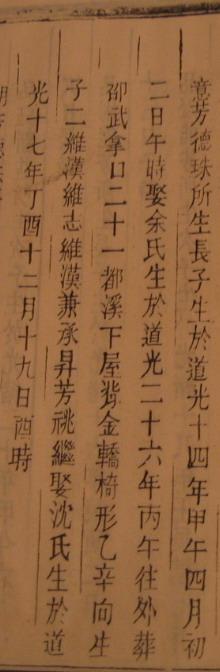 意芳德珠所生長子生於道光十四年甲午四月初
二日午時娶余氏生於道光二十六年丙午往外葬
邵武拿口二十一都溪下屋背金轎椅形乙辛向生
子二維漢維志維漢兼承昇芳祧繼娶沈氏生於道
光十七年丁酉十二月十九日酉時